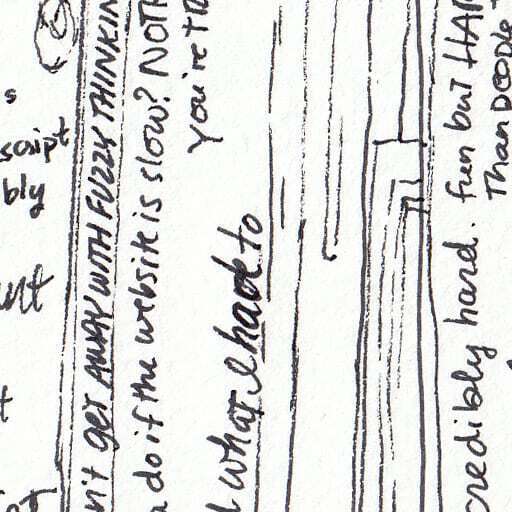 s
script
bly
n't get AWAY WITH FUZZY THINKIN
do if the website is slow? NOTH
You're TR
what I have to
credibly hard. fun but HAR
Than DOODLE